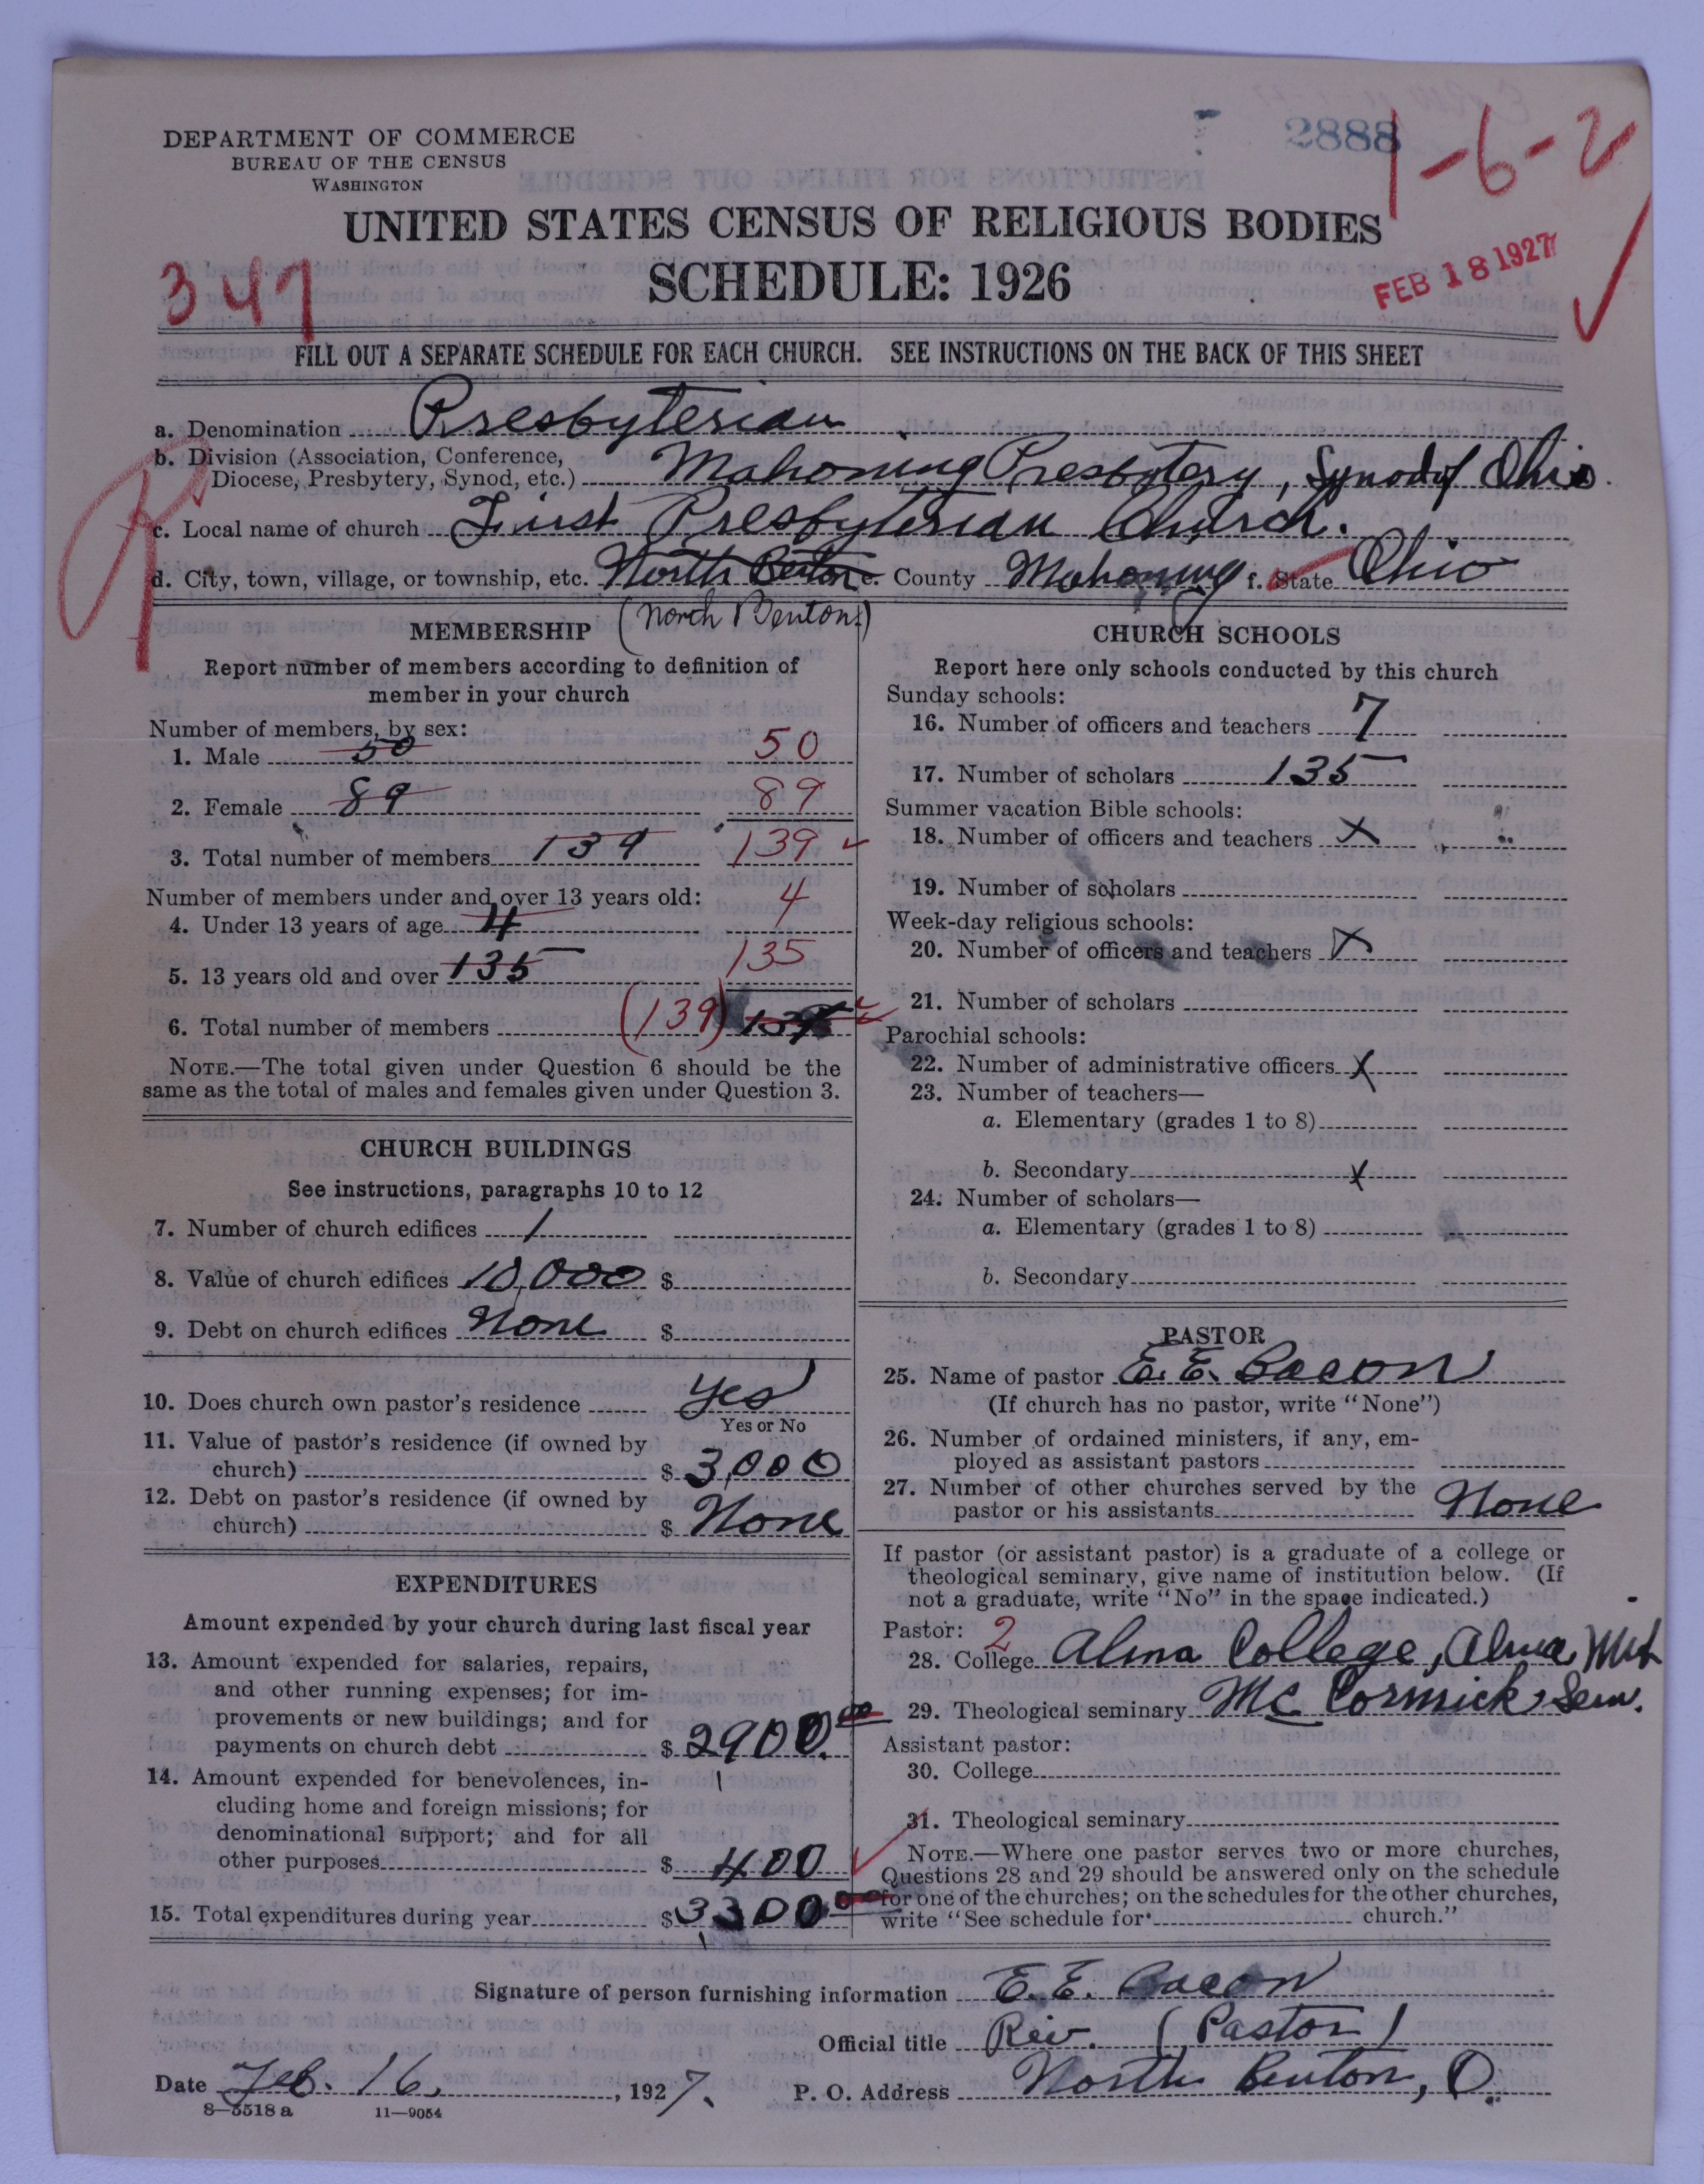 DEPARTMENT OF COMMERCE
BUREAU OF THE CENSUS
WASHINGTON
2888
1-6-2
UNITED STATES CENSUS OF RELIGIOUS BODIES
SCHEDULE: 1926
347
FEB 18 1927
FILL OUT A SEPARATE SCHEDULE FOR EACH CHURCH. SEE INSTRUCTIONS ON THE BACK OF THIS SHEET
a. Denomination Presbyterian
b. Division (Association, Conference, Diocese, Presbytery, Synod, etc.) Mahoning Presbytery, Synod of Ohio
c. Local name of church First Presbyterian Church.
d. City, town, village, or township, etc. North Benton e. County Mahoning f. State Ohio
(North Benton)
MEMBERSHIP
Report number of members according to definition of
member in your church
Number of members, by sex:
1. Male 50 50
2. Female 89 89
3. Total number of members 139 139
Number of members under and over 13 years old:
4. Under 13 years of age 4 4
5. 13 years old and over 135 135
6. Total number of members (139) 139
NOTE.—The total given under Question 6 should be the
same as the total of males and females given under Question 3.
CHURCH BUILDINGS
See instructions, paragraphs 10 to 12
7. Number of church edifices 1
8. Value of church edifices 10,000 $
9. Debt on church edifices None $
10. Does church own pastor's residence Yes
Yes or No
11. Value of pastor's residence (if owned by
church) $ 3,000
12. Debt on pastor's residence (if owned by
church) $ None
EXPENDITURES
Amount expended by your church during last fiscal year
13. Amount expended for salaries, repairs,
and other running expenses; for im-
provements or new buildings; and for
payments on church debt $ 2900.00
14. Amount expended for benevolences, in-
cluding home and foreign missions; for
denominational support; and for all
other purposes $ 400
15. Total expenditures during year $ 3300
CHURCH SCHOOLS
Report here only schools conducted by this church
Sunday schools:
16. Number of officers and teachers 7
17. Number of scholars 135
Summer vacation Bible schools:
18. Number of officers and teachers X
19. Number of scholars
Week-day religious schools:
20. Number of officers and teachers X
21. Number of scholars
Parochial schools:
22. Number of administrative officers X
23. Number of teachers—
a. Elementary (grades 1 to 8)
b. Secondary X
24. Number of scholars—
a. Elementary (grades 1 to 8)
b. Secondary
PASTOR
25. Name of pastor E. E. Bacon
(If church has no pastor, write "None")
26. Number of ordained ministers, if any, em-
ployed as assistant pastors
27. Number of other churches served by the
pastor or his assistants None
If pastor (or assistant pastor) is a graduate of a college or
theological seminary, give name of institution below. (If
not a graduate, write "No" in the space indicated.)
Pastor: 2
28. College Alma College, Alma, Mich
29. Theological seminary McCormick Sem.
Assistant pastor:
30. College
31. Theological seminary
NOTE.—Where one pastor serves two or more churches,
Questions 28 and 29 should be answered only on the schedule
for one of the churches; on the schedules for the other churches,
write "See schedule for church."
Signature of person furnishing information E. E. Bacon
Official title Rev. (Pastor)
Date Feb. 16, 1927. P. O. Address North Benton, O.
8-5518 a 11-9054